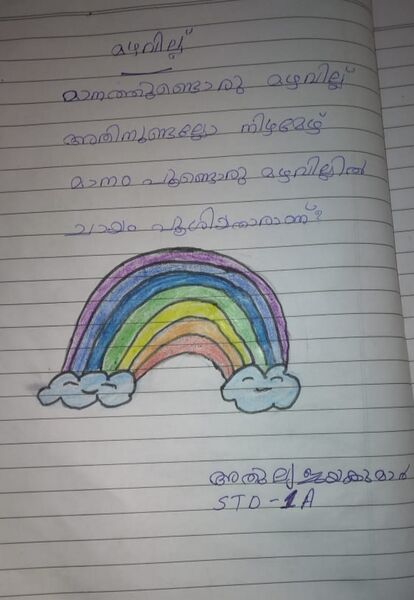 മഴവില്ല്
മാനത്തുണ്ടൊരു മഴവില്ല്
അതിനുണ്ടല്ലോ നിറമേഴ്
മാനം പൂണ്ടൊരു മഴവില്ലിൽ
ചായം പൂശിയതാരാണ്?
അതുല്യ ജയകുമാർ
STD-1A